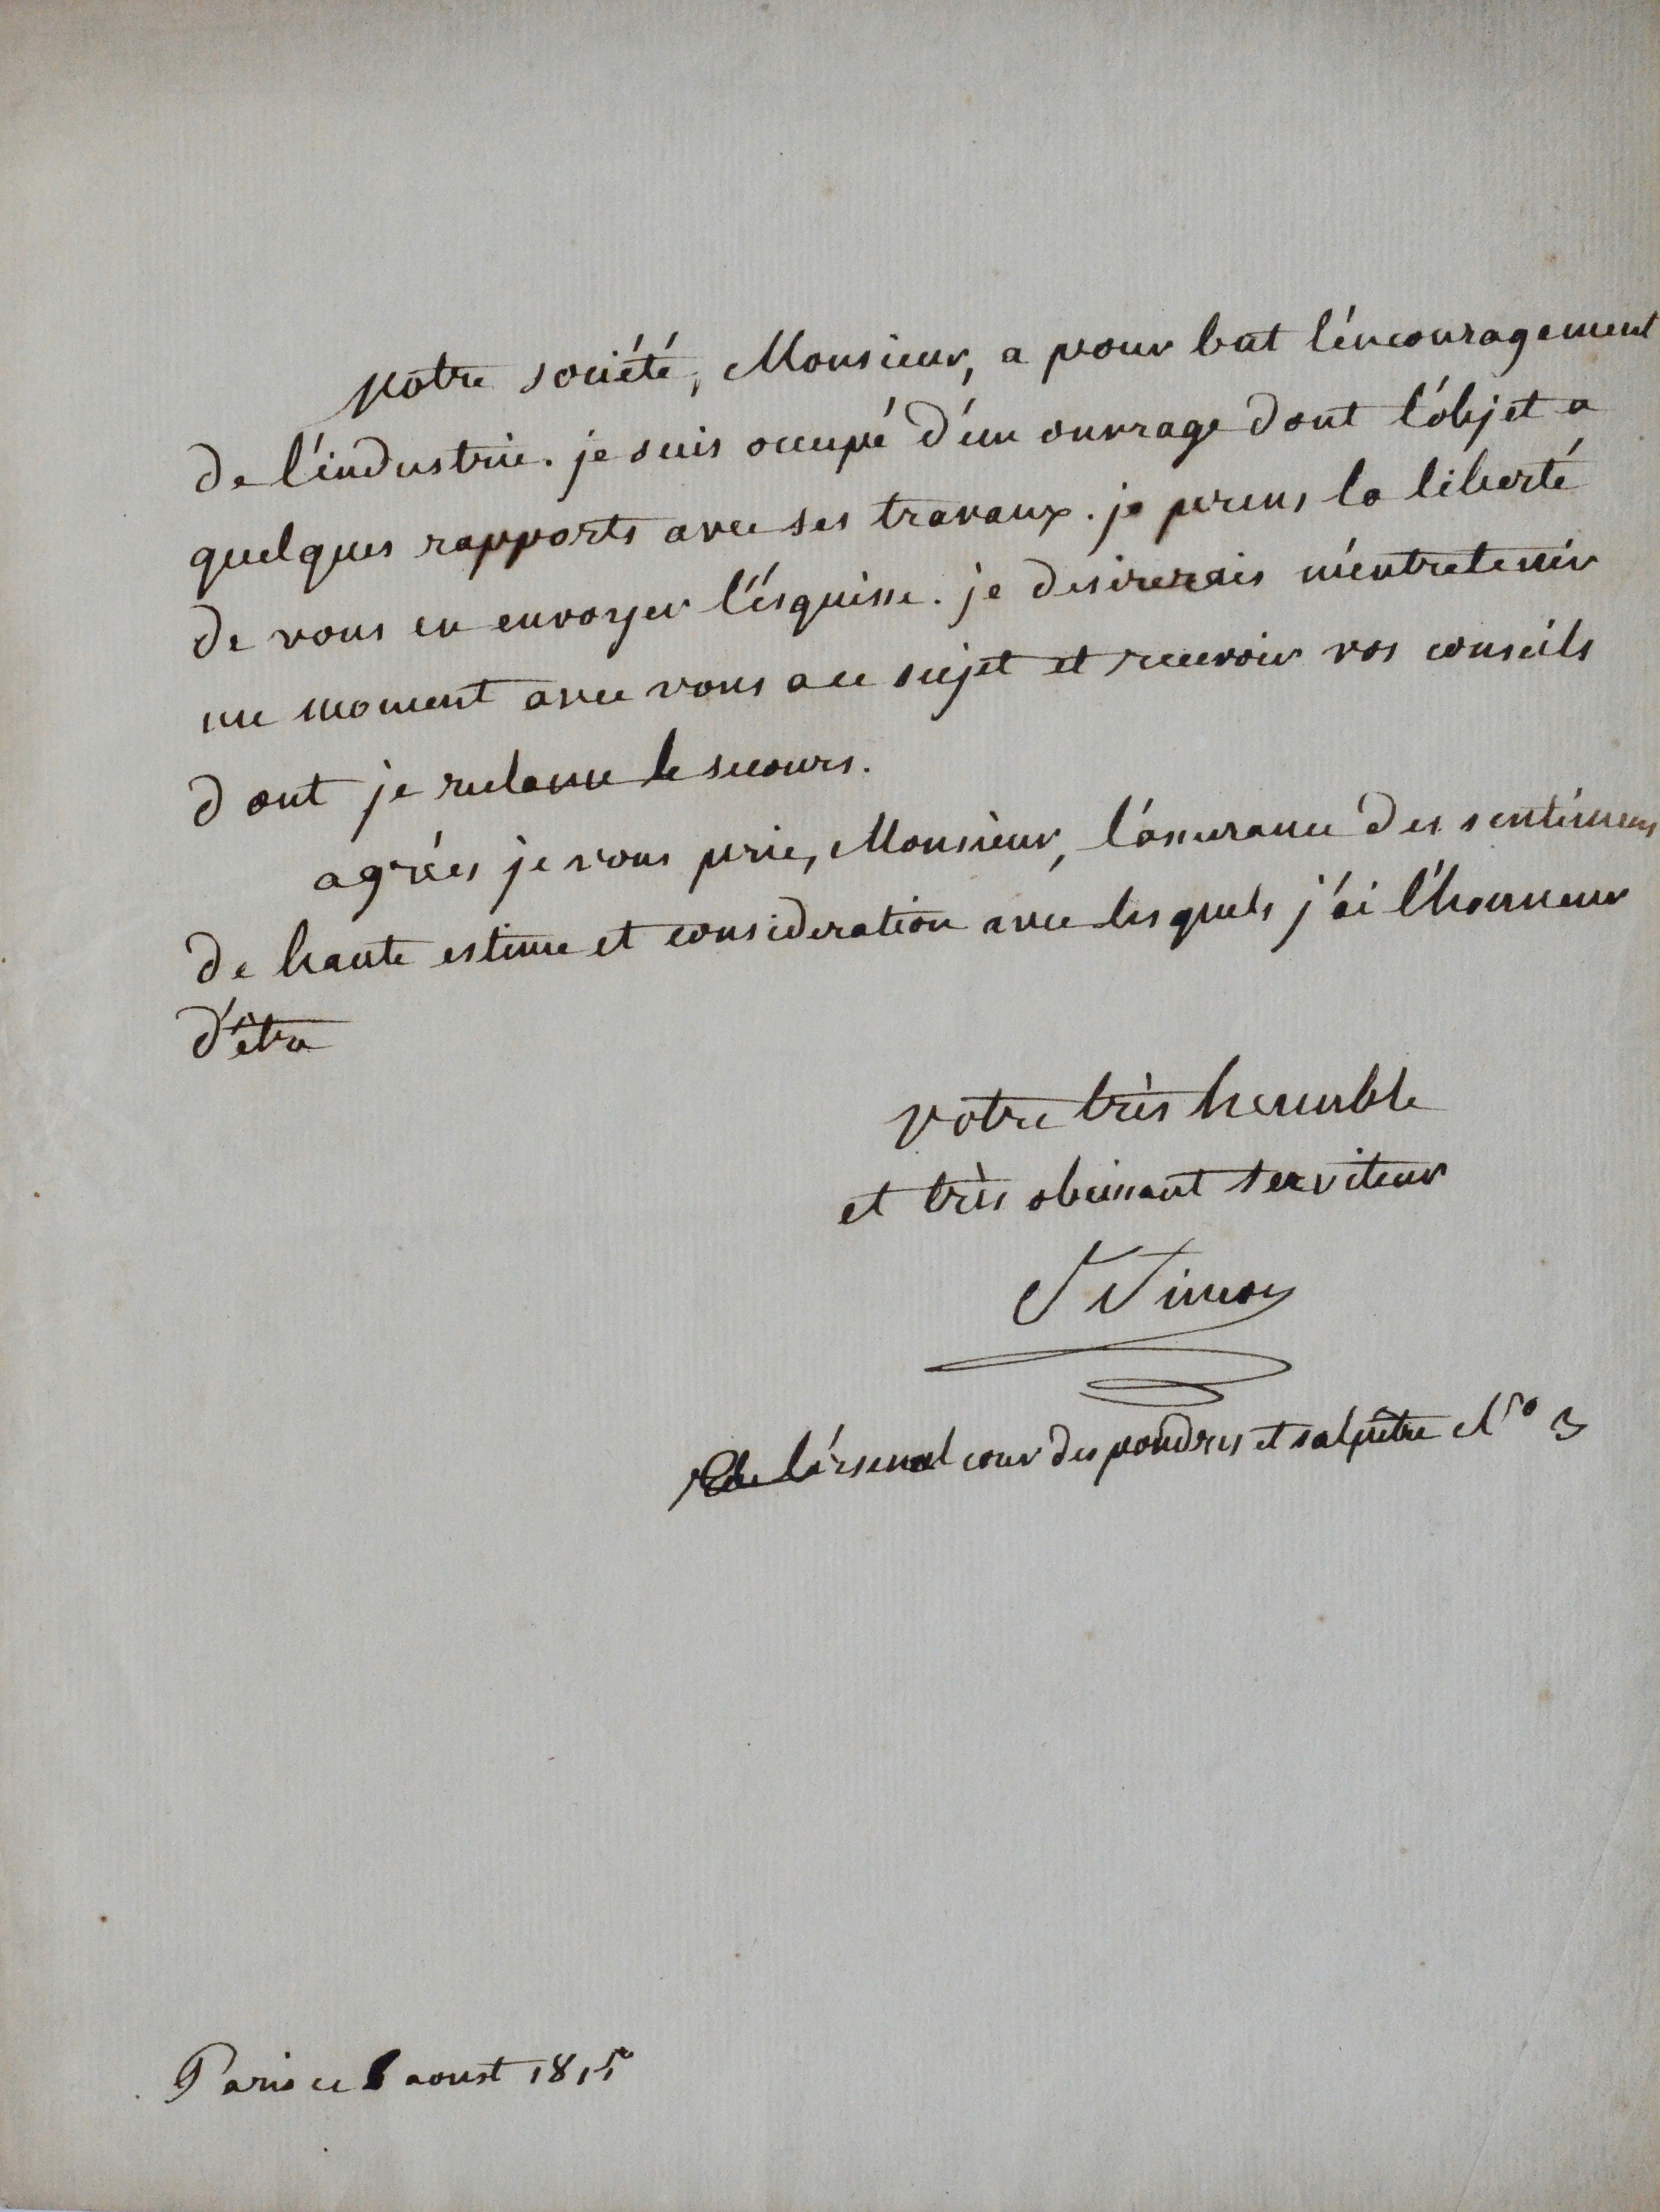 votre société, Monsieur, a pour but l'éncouragement
de l'industrie. je suis occupé d'un ouvrage dont l'objet a
quelques rapports avec ses travaux. je prens la liberté
de vous en envoyer l'ésquisse. je desirerais m'entretenir
un moment avec vous a ce sujet et recevoir vos conseils
dont je reclame le secours.
agrées je vous prie, Monsieur, l'assurance des sentimens
de haute estime et consideration avec lesquels j'ai l'honneur
d'être
votre très humble
et très obeissant serviteur
St Simon
l'arsenal cour des poudres et salpêtre N° 3
Paris ce aoust 1815